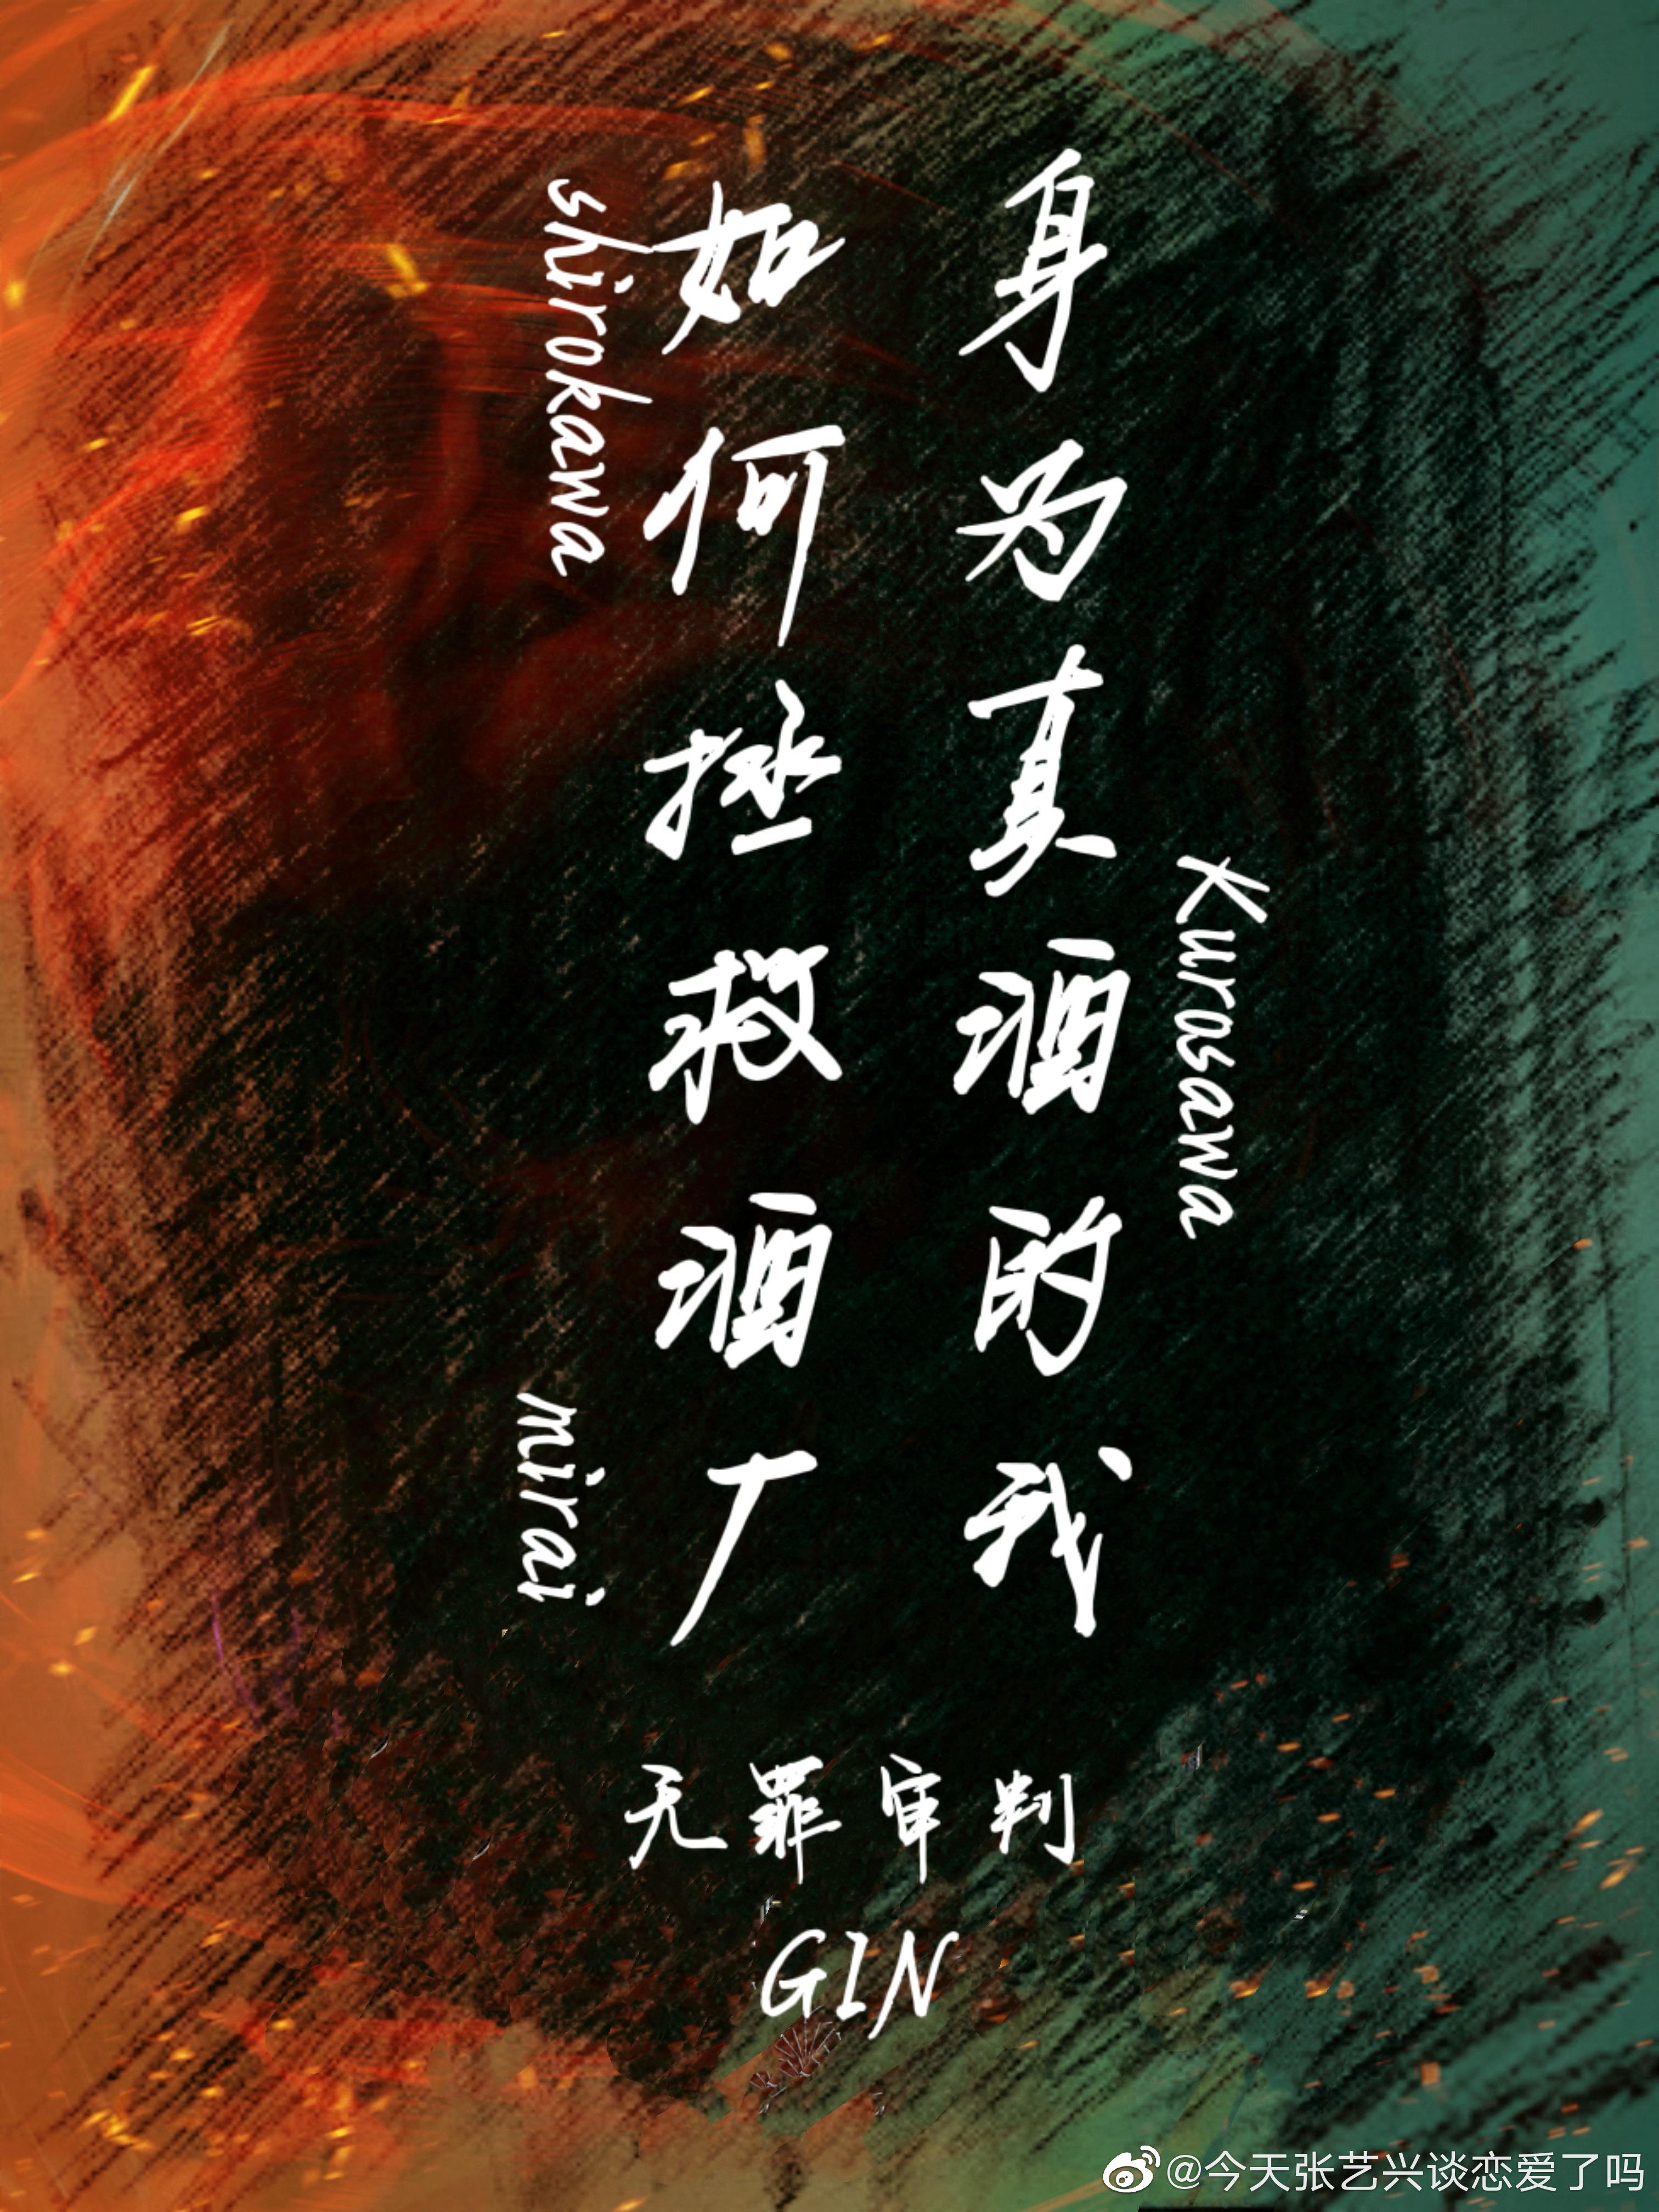 身为真酒的我
Kurosawa
如何拯救酒厂
shirokawa
mirai
无罪审判
GIN
@今天张艺兴谈恋爱了吗